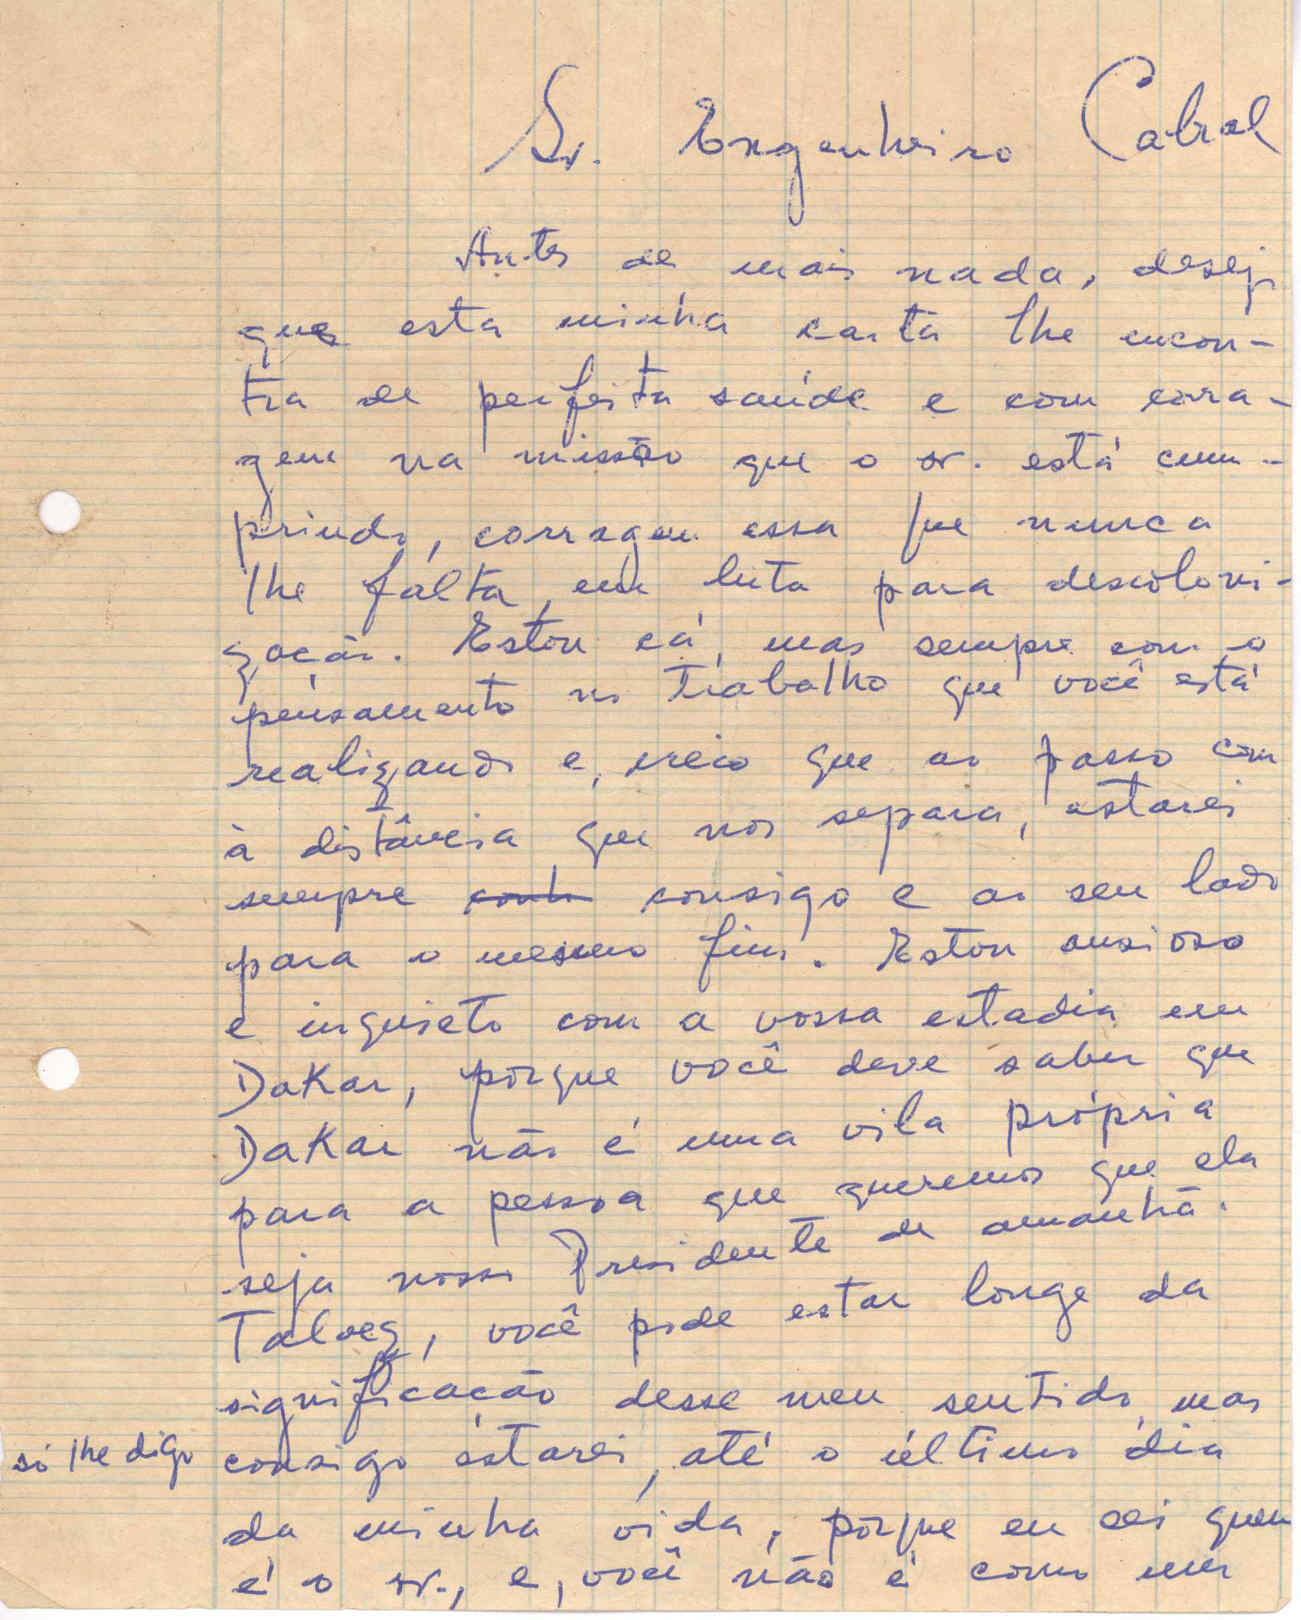 Sr. Engenheiro Cabral
Antes de mais nada, desejo
que esta minha carta lhe encon-
tra de perfeita saúde e com cora-
gem na missão que o sr. está cum-
prindo, corragem essa que nunca
lhe falta, em luta para descoloni-
zação. Estou cá, mas sempre com o
pensamento no trabalho que você está
realizando e, creio que ao passo com
à distância que nos separa, estarei
sempre consigo e ao seu lado
para o mesmo fim. Estou ansioso
e inquieto com a vossa estadia em
Dakar, porque você deve saber que
Dakar não é uma vila própria
para a pessoa que queremos que ela
seja nosso Presidente de amanhã.
Talvez, você pode estar longe da
significação desse meu sentido, mas
só lhe digo consigo estarei, até o último dia
da minha vida, porque eu sei quem
é o sr., e, você não é como um